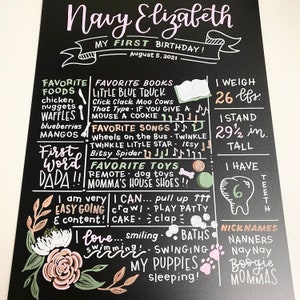 Navy Elizabeth
MY FIRST BIRTHDAY!
August 5, 2021
FAVORITE
FOODS
chicken
nuggets
WAFFLES
blueberries
MANGOS
FAVORITE BOOKS
LITTLE BLUE TRUCK
Click Clack Moo Cows
That Type · IF YOU GIVE A
MOUSE A COOKIE
FAVORITE SONGS
Wheels on the Bus · TWINKLE
TWINKLE LITTLE STAR · Itsy
Bitsy Spider
FAVORITE TOYS
REMOTE · dog toys
MOMMA'S HOUSE SHOES!!
I WEIGH
26 lbs
I STAND
29½ in.
TALL
First
Word
DADA!!
I HAVE
6
TEETH
I am very
EASY GOING
content!
I CAN... pull up
crawl · PLAY PATTY
CAKE · clap
I love... smiling
BATHS
swimming
SWINGING
MY PUPPIES
sleeping!
NICKNAMES
NANNERS
NayNay
Boogie
MOMMAS